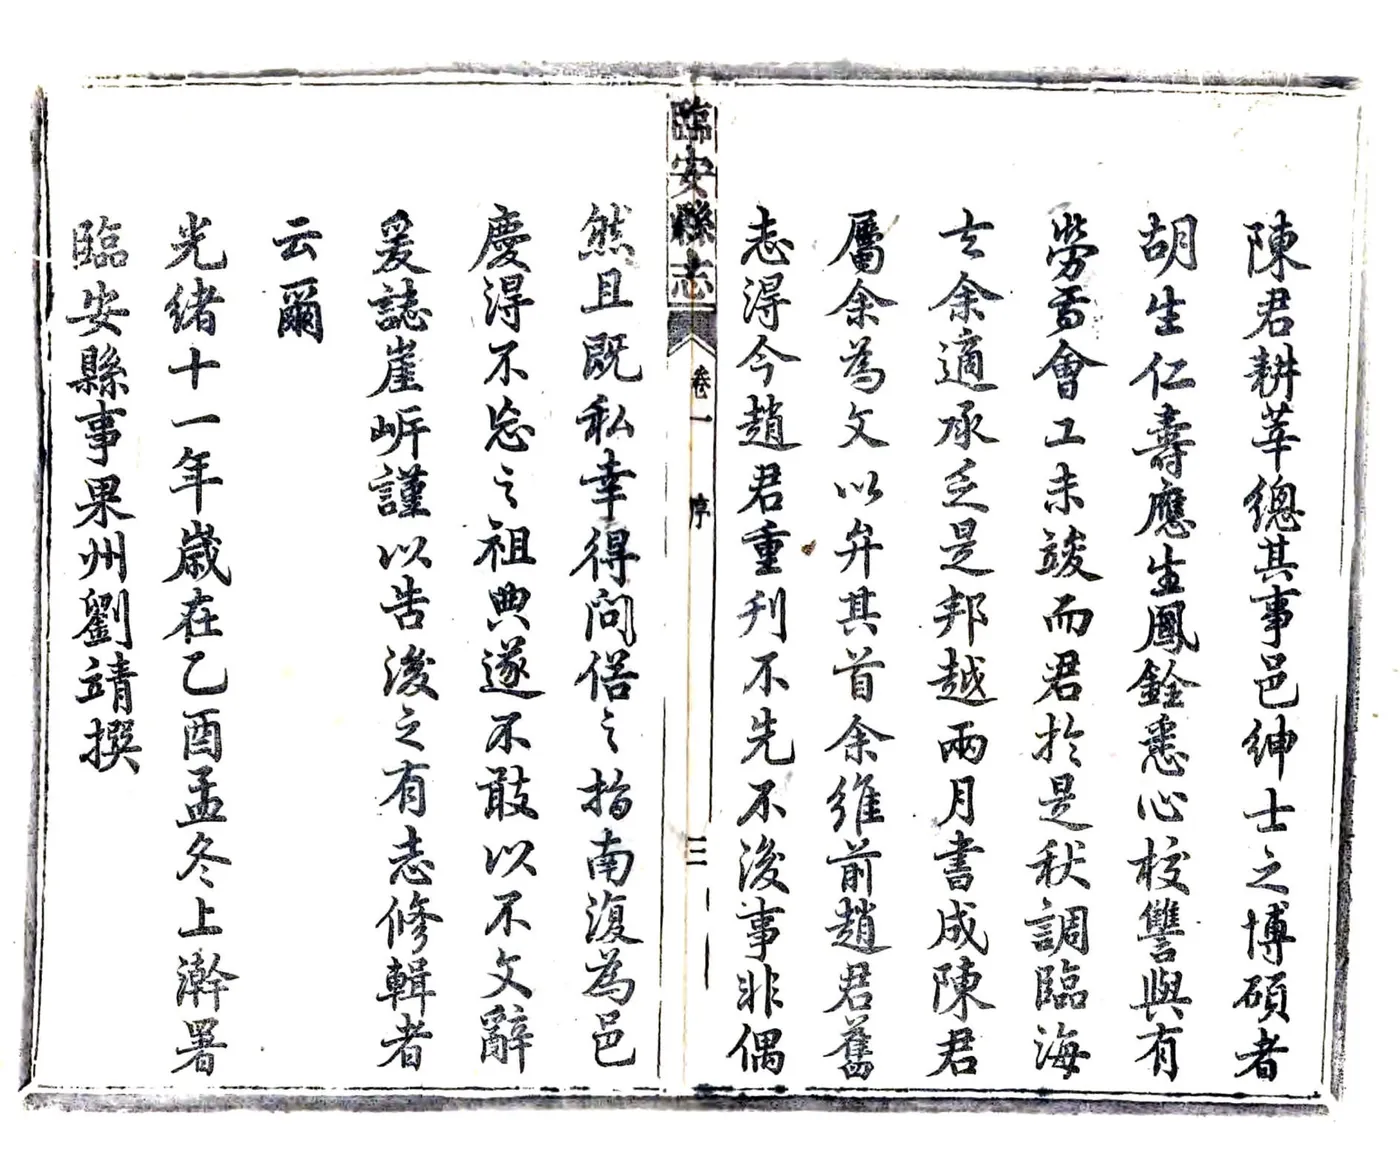 陳君耕莘總其事邑紳士之博碩者
胡生仁壽應生鳳銓悉心校讐與有
勞焉會工未竣而君於是秋調臨海
去余適承乏是邦越兩月書成陳君
屬余為文以弁其首余維前趙君舊
志得今趙君重刋不先不後事非偶
臨安縣志
卷一
序
三
然且既私幸得問俗之指南復為邑
慶得不忘之祖典遂不敢以不文辭
爰誌崖岓謹以告後之有志修輯者
云爾
光緒十一年歲在乙酉孟冬上澣署
臨安縣事果州劉靖撰